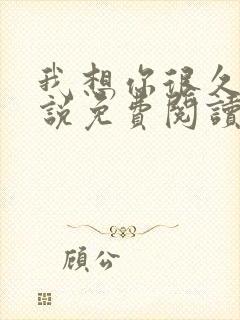 我想你很久
說免費閱讀
顧公